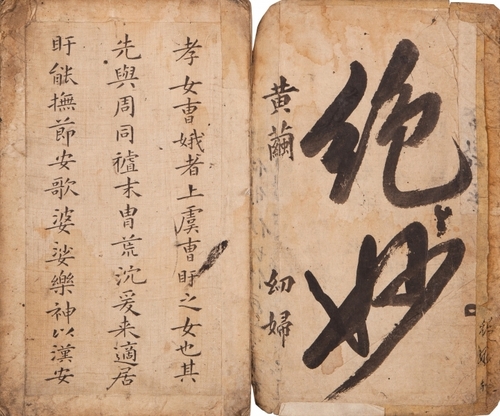 絶妙
黄繭
幼婦
孝女曺娥者上虞曺盱之女也其
先與周同𥠖末冑荒沉爰来適居
盱能撫節安歌婆娑樂神以漢安